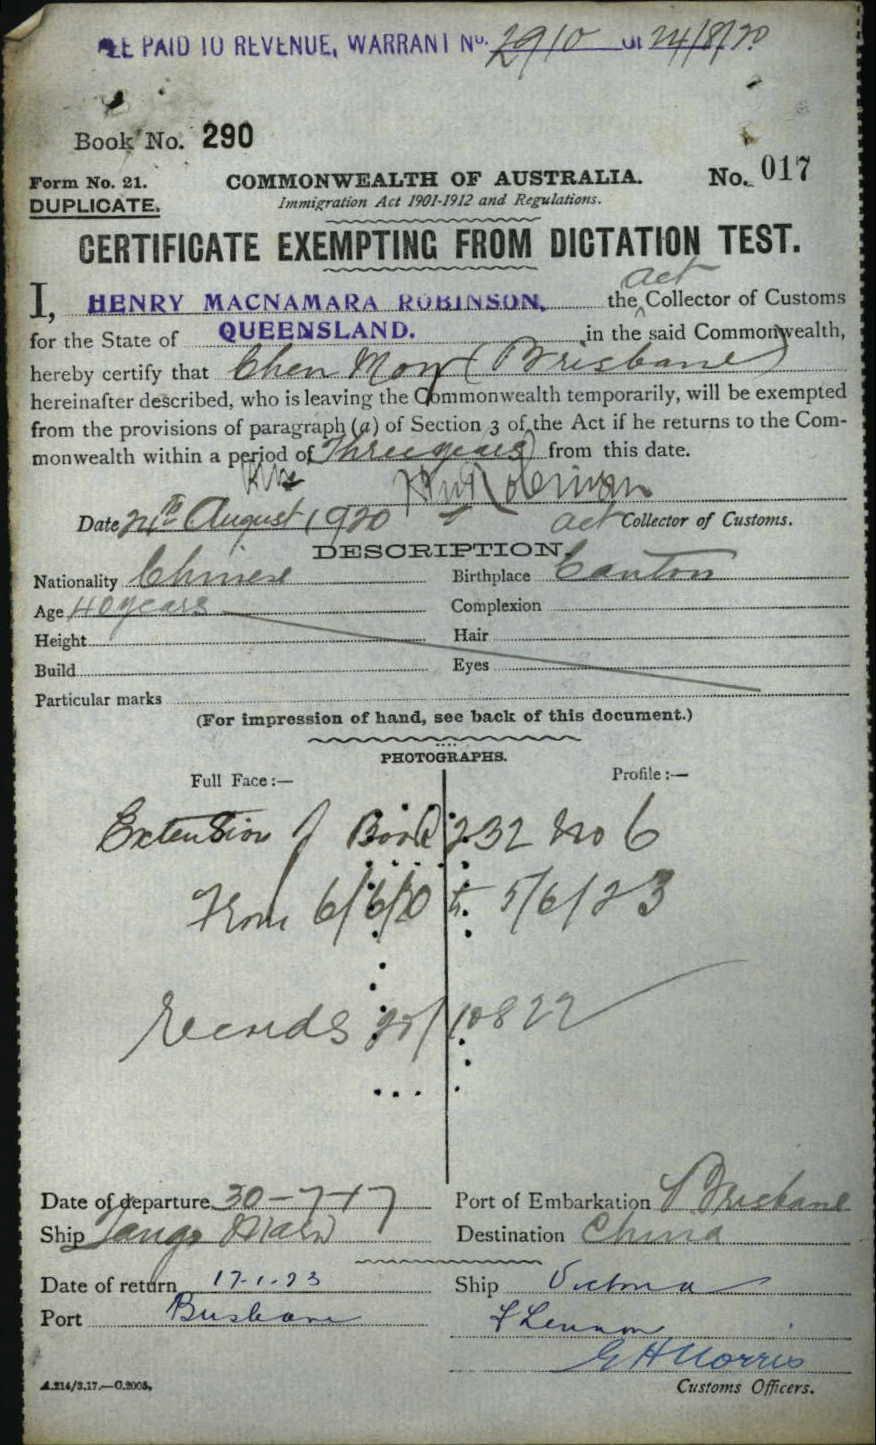 PAID TO REVENUE, WARRANT No. 2910 of 24/8/20
Book No. 290
Form No. 21. COMMONWEALTH OF AUSTRALIA. No. 017
DUPLICATE. Immigration Act 1901-1912 and Regulations.
CERTIFICATE EXEMPTING FROM DICTATION TEST.
act
I, HENRY MACNAMARA ROBINSON, the Collector of Customs
for the State of QUEENSLAND. in the said Commonwealth,
hereby certify that Chen Mow (Brisbane)
hereinafter described, who is leaving the Commonwealth temporarily, will be exempted
from the provisions of paragraph (a) of Section 3 of the Act if he returns to the Com-
monwealth within a period of Three years from this date.
Date 24th August 1920 act Collector of Customs.
DESCRIPTION.
Nationality Chinese Birthplace Canton
Age 40 years Complexion
Height Hair
Build Eyes
Particular marks
(For impression of hand, see back of this document.)
PHOTOGRAPHS.
Full Face :— Profile :—
Extension of Book 232 No 6
From 6/6/20 to 5/6/23
Records 10822
Date of departure 30-7-17 Port of Embarkation Brisbane
Ship Tango Maru Destination China
Date of return 17.1.23 Ship Victoria
Port Brisbane F Lennon
G H Norris
A.214/3.17.—C.2005. Customs Officers.